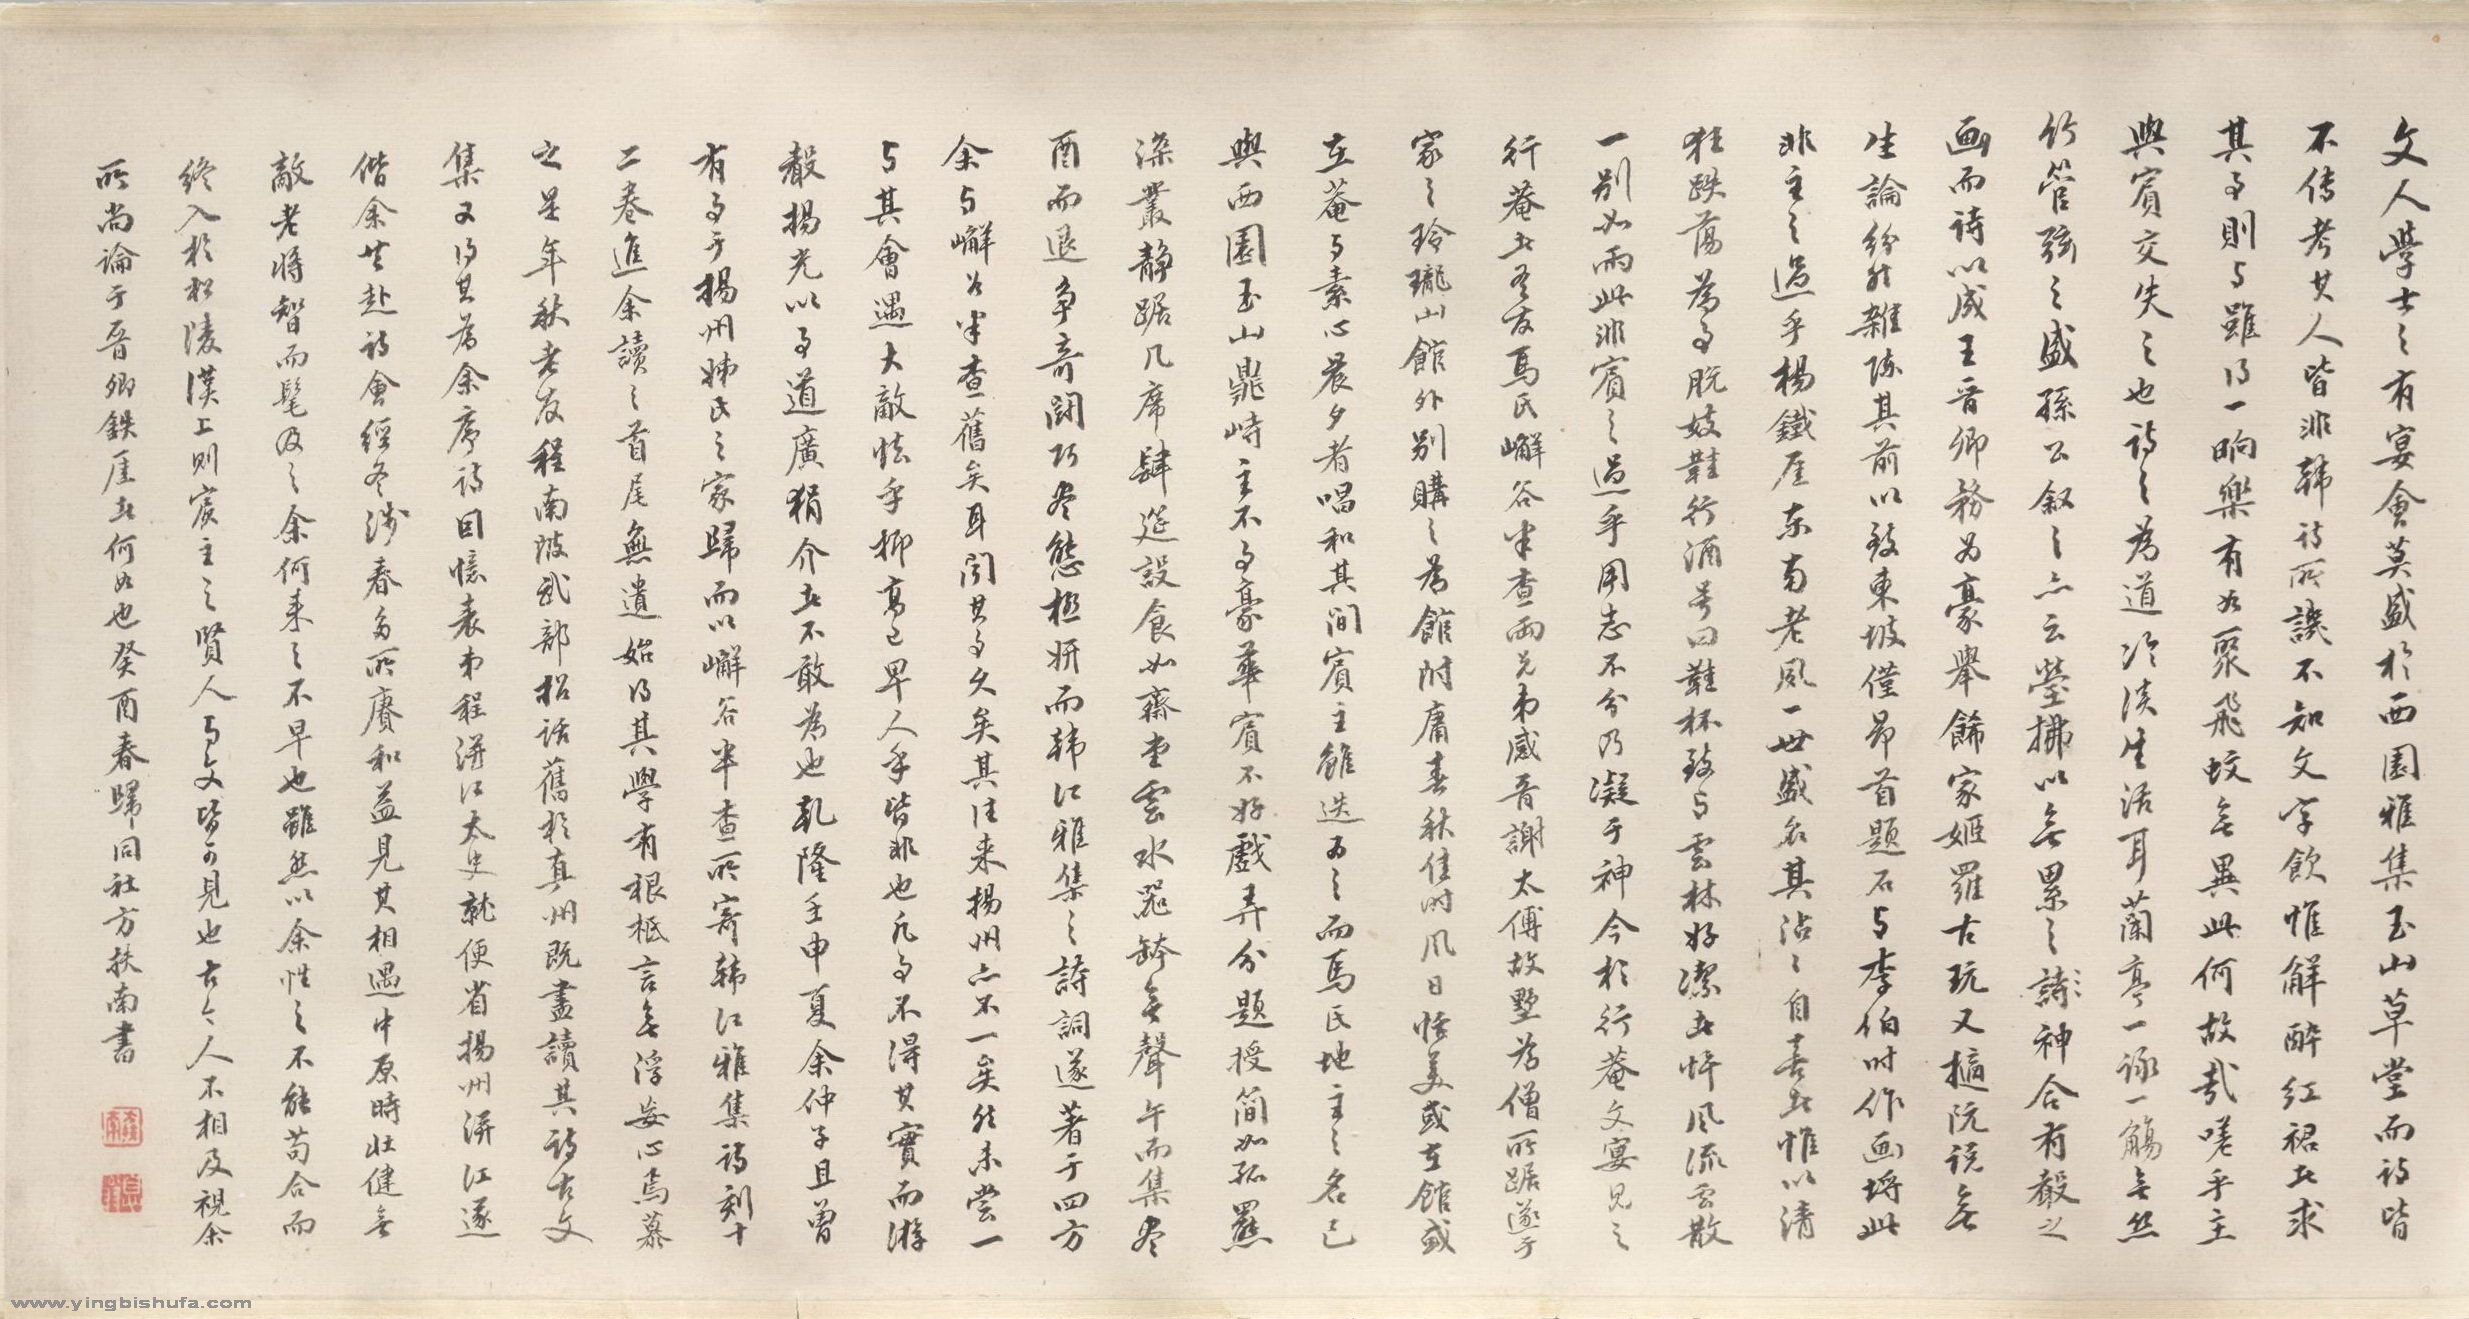 文人學士之有宴會莫盛於西園雅集玉山草堂而詩皆
不傳考其人皆非韩詩所譏不知文字飲惟解醉紅裙者求
其事則與雖得一晌樂有如聚飛蚊無異此何故哉嗟乎主
與賓交失之也詩之為道冷淡生活耳蘭亭一詠一觴無絲
竹管弦之盛孫公叙之亦云瑩拂以無累之詩神合有聲之
画而詩以成王晋卿務為豪舉餙家姬羅古玩又摛阮说無
生論紛然雜陈其前以致東坡僅昂首題石與李伯时作画将此
非主之過乎楊鐵厓东南老風一世盛名其沾沾自喜者惟以清
狂跌蕩為事脱妓鞋行酒号曰鞋杯致与雲林好潔者忤风流雲散
一别如雨此非賓之過乎用志不分乃凝于神今於行菴文宴見之
行菴者吾友馬氏嶰谷半查兩兄弟感晋謝太傅故墅為僧所踞遂于
家之玲瓏山館外别購之為館附庸春秋佳时风日恬美或在館或
在菴与素心晨夕者唱和其间賓主雖迭为之而馬氏地主之名已
與西園玉山鼎峙主不事豪華賓不好戲弄分題授简如孤羆
深叢静踞几席肆筵設食如齋堂雲水器鉢無聲午而集尽
酉而退争奇鬪巧尽態極妍而韩江雅集之詩詞遂著于四方
余与嶰谷半查舊矣耳闻其事久矣其往来揚州亦不一矣然未尝一
与其會遇大敵怯乎抑高己卑人乎皆非也凡事不得其實而游
聲揚光以事道廣狷介者不敢為也乾隆壬申夏余仲子且曾
有事于揚州姊氏之家歸而以嶰谷半查所寄韩江雅集詩刻十
二卷進余讀之首尾無遺始得其學有根柢言無浮妄心焉慕
之是年秋老友程南陂武部招話舊於真州既盡讀其詩古文
集又得其為余序詩回憶表弟程洴江太史就便省揚州洴江遂
偕余共赴詩會經冬涉春多所賡和益見其相遇中原時壮健無
敵老将智而髦及之余何来之不早也雖然以余性之不能苟合而
终入於松陵漢上則賓主之賢人与文皆可見也古今人不相及視余
所尚論于晋卿鉄厓者何如也癸酉春歸同社方扶南書
www.yingbishufa.com